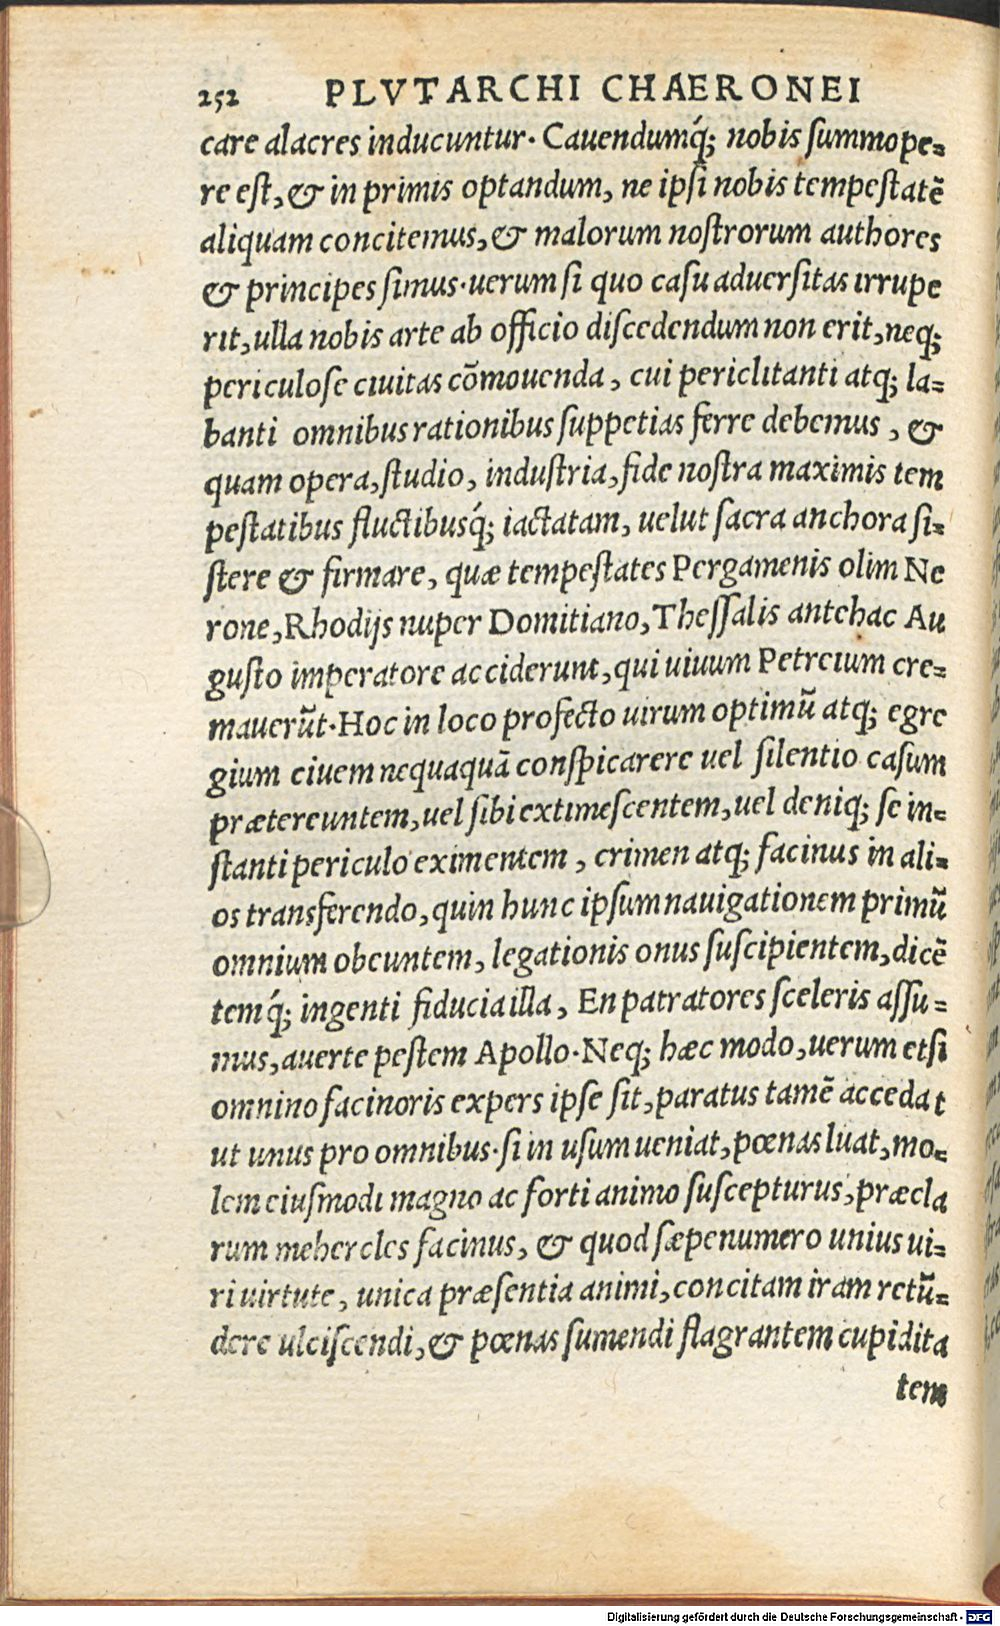 252 PLVTARCHI CHAERONEI
care alacres inducuntur. Cauendumq́; nobis summope=
re est, & in primis optandum, ne ipsi nobis tempestatē
aliquam concitemus, & malorum nostrorum authores
& principes simus. uerum si quo casu aduersitas irrupe
rit, ulla nobis arte ab officio discedendum non erit, neq;
periculose ciuitas cōmouenda, cui periclitanti atq; la=
banti omnibus rationibus suppetias ferre debemus, &
quam opera, studio, industria, fide nostra maximis tem
pestatibus fluctibusq́; iactatam, uelut sacra anchora si=
stere & firmare, quæ tempestates Pergamenis olim Ne
rone, Rhodijs nuper Domitiano, Thessalis antehac Au
gusto imperatore acciderunt, qui uiuum Petreium cre=
mauerūt. Hoc in loco profecto uirum optimū atq; egre
gium ciuem nequaquā conspicarere uel silentio casum
prætereuntem, uel sibi extimescentem, uel deniq; se in=
stanti periculo eximentem, crimen atq; facinus in ali=
os transferendo, quin hunc ipsum nauigationem primū
omnium obeuntem, legationis onus suscipientem, dicē
temq́; ingenti fiducia illa, En patratores sceleris assu=
mus, auerte pestem Apollo. Neq; hæc modo, uerum etsi
omnino facinoris expers ipse sit, paratus tamē accedat
ut unus pro omnibus. si in usum ueniat, pœnas luat, mo=
lem eiusmodi magno ac forti animo suscepturus, præcla
rum mehercles facinus, & quod sæpenumero unius ui=
ri uirtute, unica præsentia animi, concitam iram retū=
dere ulciscendi, & pœnas sumendi flagrantem cupidita
tem
Digitalisierung gefördert durch die Deutsche Forschungsgemeinschaft - DFG